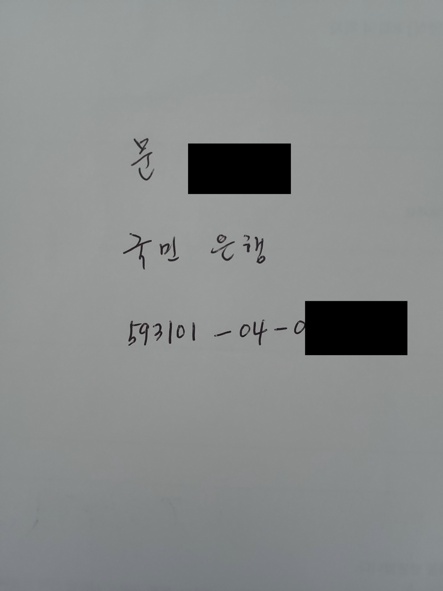 문
국민 은행
593101-04-0